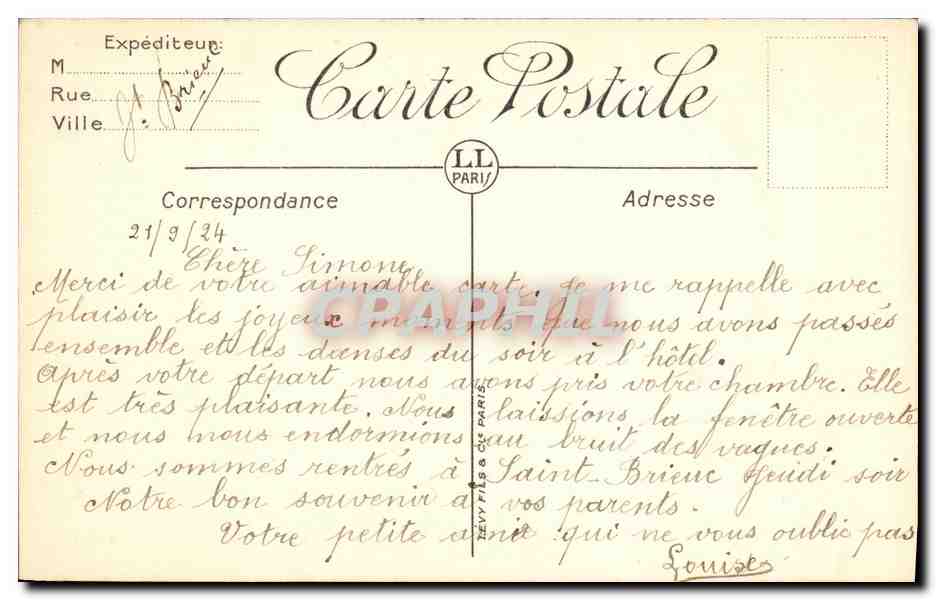 Expéditeur:
M
Rue
Ville
St. Brieuc
Carte Postale
LL
PARIS
Correspondance
Adresse
21/9/24
Chère Simone
Merci de votre aimable carte. Je me rappelle avec
plaisir les joyeux moments que nous avons passés
ensemble et les danses du soir à l'hôtel.
Après votre départ nous avons pris votre chambre. Elle
est très plaisante. Nous laissions la fenêtre ouverte
et nous nous endormions au bruit des vagues.
Nous sommes rentrés à Saint-Brieuc Jeudi soir
Notre bon souvenir à vos parents.
Votre petite amie qui ne vous oublie pas
Louise
LÉVY FILS & Cie PARIS
CPAPHIL